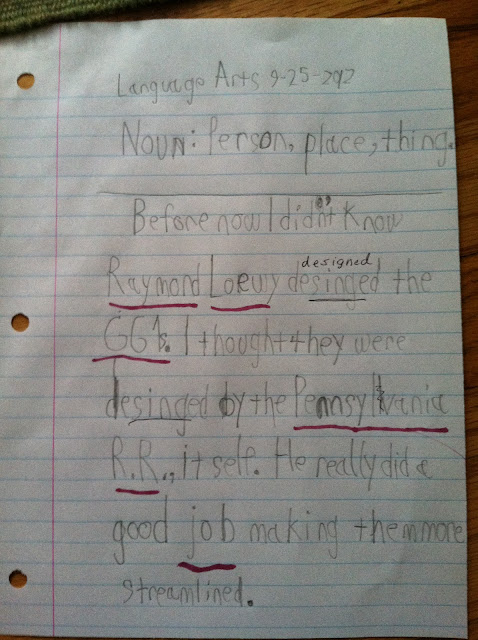 Language Arts 9-25-2012
Noun: Person, place, thing.
Before now I didn't know
designed
Raymond Loewy desinged the
GG1s. I thought they were
desinged by the Pennsylvania
R.R., it self. He really did a
good job making them more
streamlined.